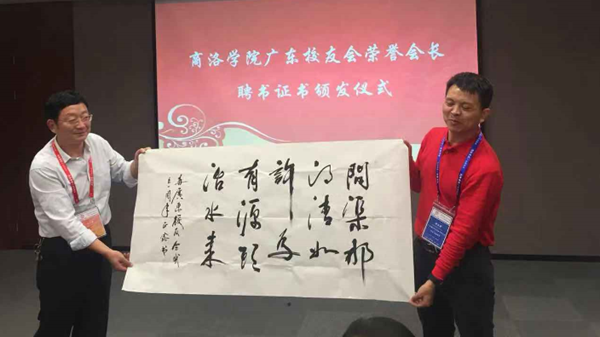 商洛学院广东校友会荣誉会长
聘书证书颁发仪式
問渠那
得清如
許為
有源頭
活水来
廣東校友会